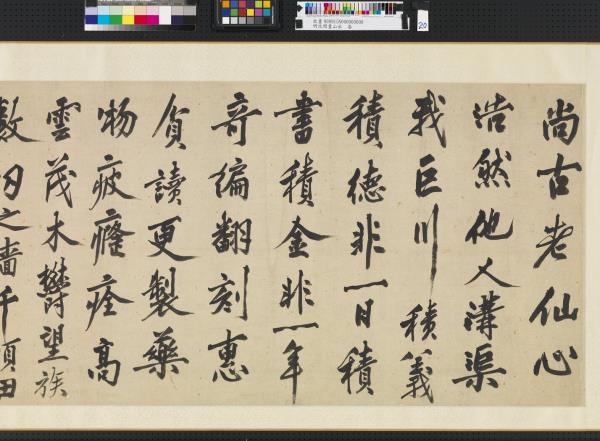 尚古老仙心
浩然他人溝渠
我巨川積義
積德非一日積
書積金非一年
奇編翻刻惠
貧讀更製藥
物疲癃痊高
雲茂木鬱望族
數仞之牆千頃田
20